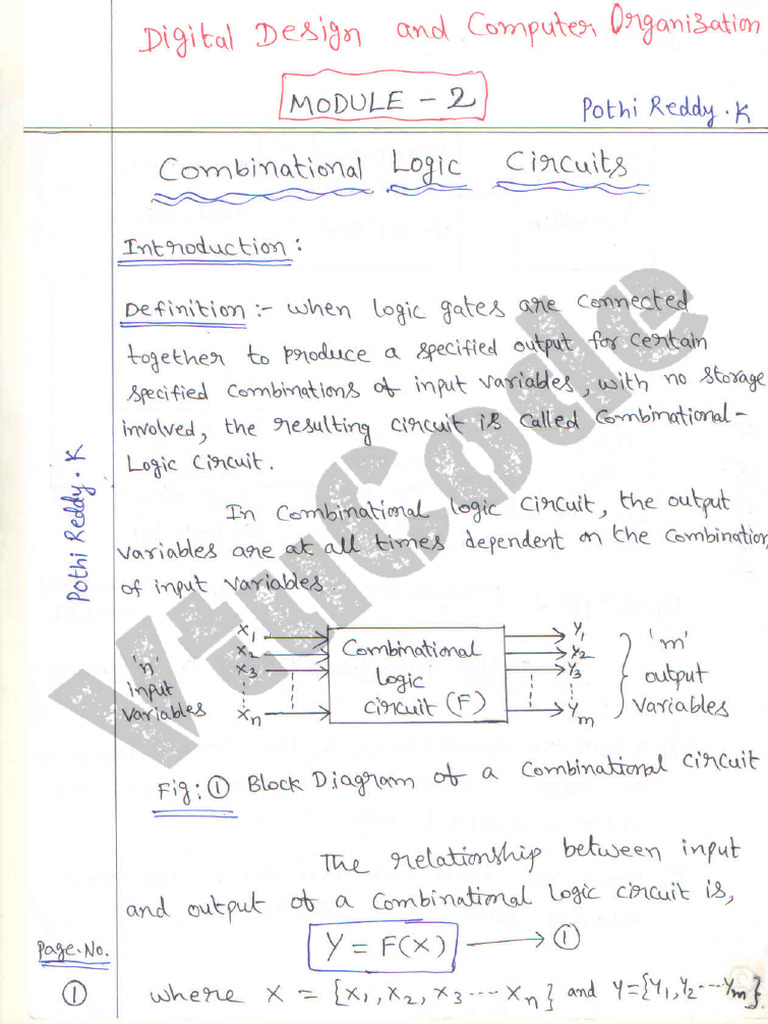 Digital Design and Computer Organization
MODULE - 2
Pothi Reddy. K
Combinational Logic Circuits
Introduction :
Definition :- when logic gates are connected
together to produce a specified output for certain
specified combinations of input variables, with no storage
involved, the resulting circuit is called combinational-
Logic circuit.
In combinational logic circuit, the output
variables are at all times dependent on the combination
of input variables.
Pothi Reddy. K
'n'
input
variables
X1
X2
X3
Xn
Combinational
logic
circuit (F)
Y1
Y2
Y3
Ym
'm'
output
variables
Fig: ① Block Diagram of a combinational circuit
The relationship between input
and output of a combinational logic circuit is,
Y = F(X) → ①
where X = {X1, X2, X3 ---- Xn} and Y={Y1, Y2 ---Ym}.
Page. No.
①
VtuCode